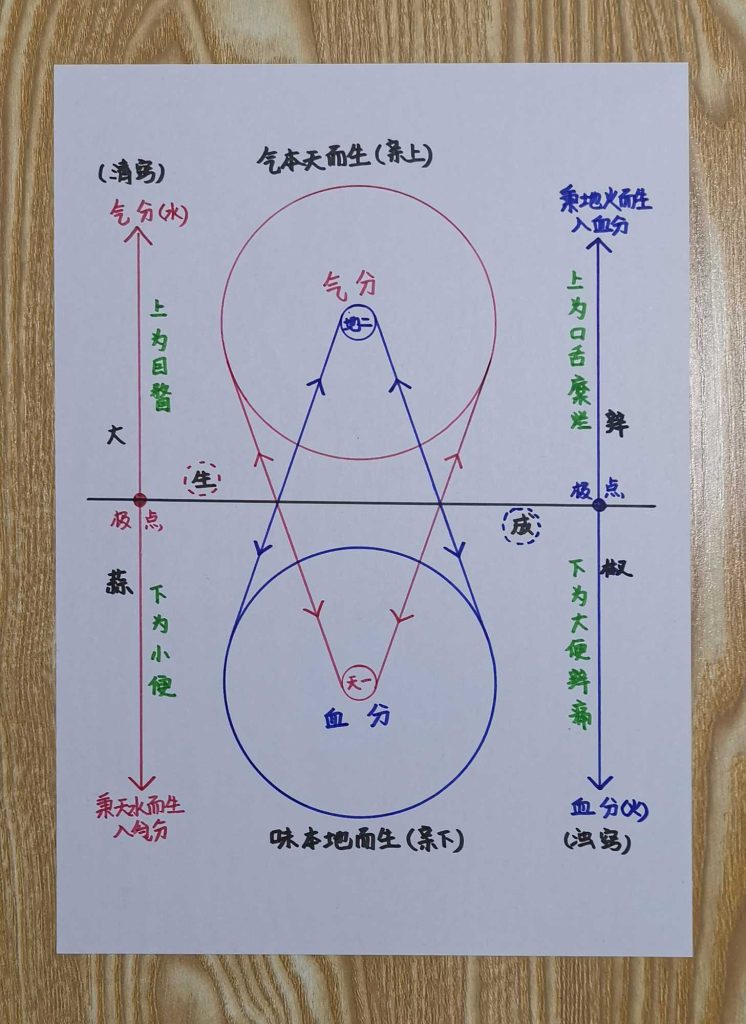 (清窍)
气本天而生(亲上)
气分(水)
秉地火而生
入血分
气分
地二
上为目瞀
上为口舌糜烂
大
辣
生
极点
极点
成
蒜
椒
下为小便
下为大便辣痛
天一
血分
秉天水而生
入气分
血分(火)
味本地而生(亲下)
(浊窍)